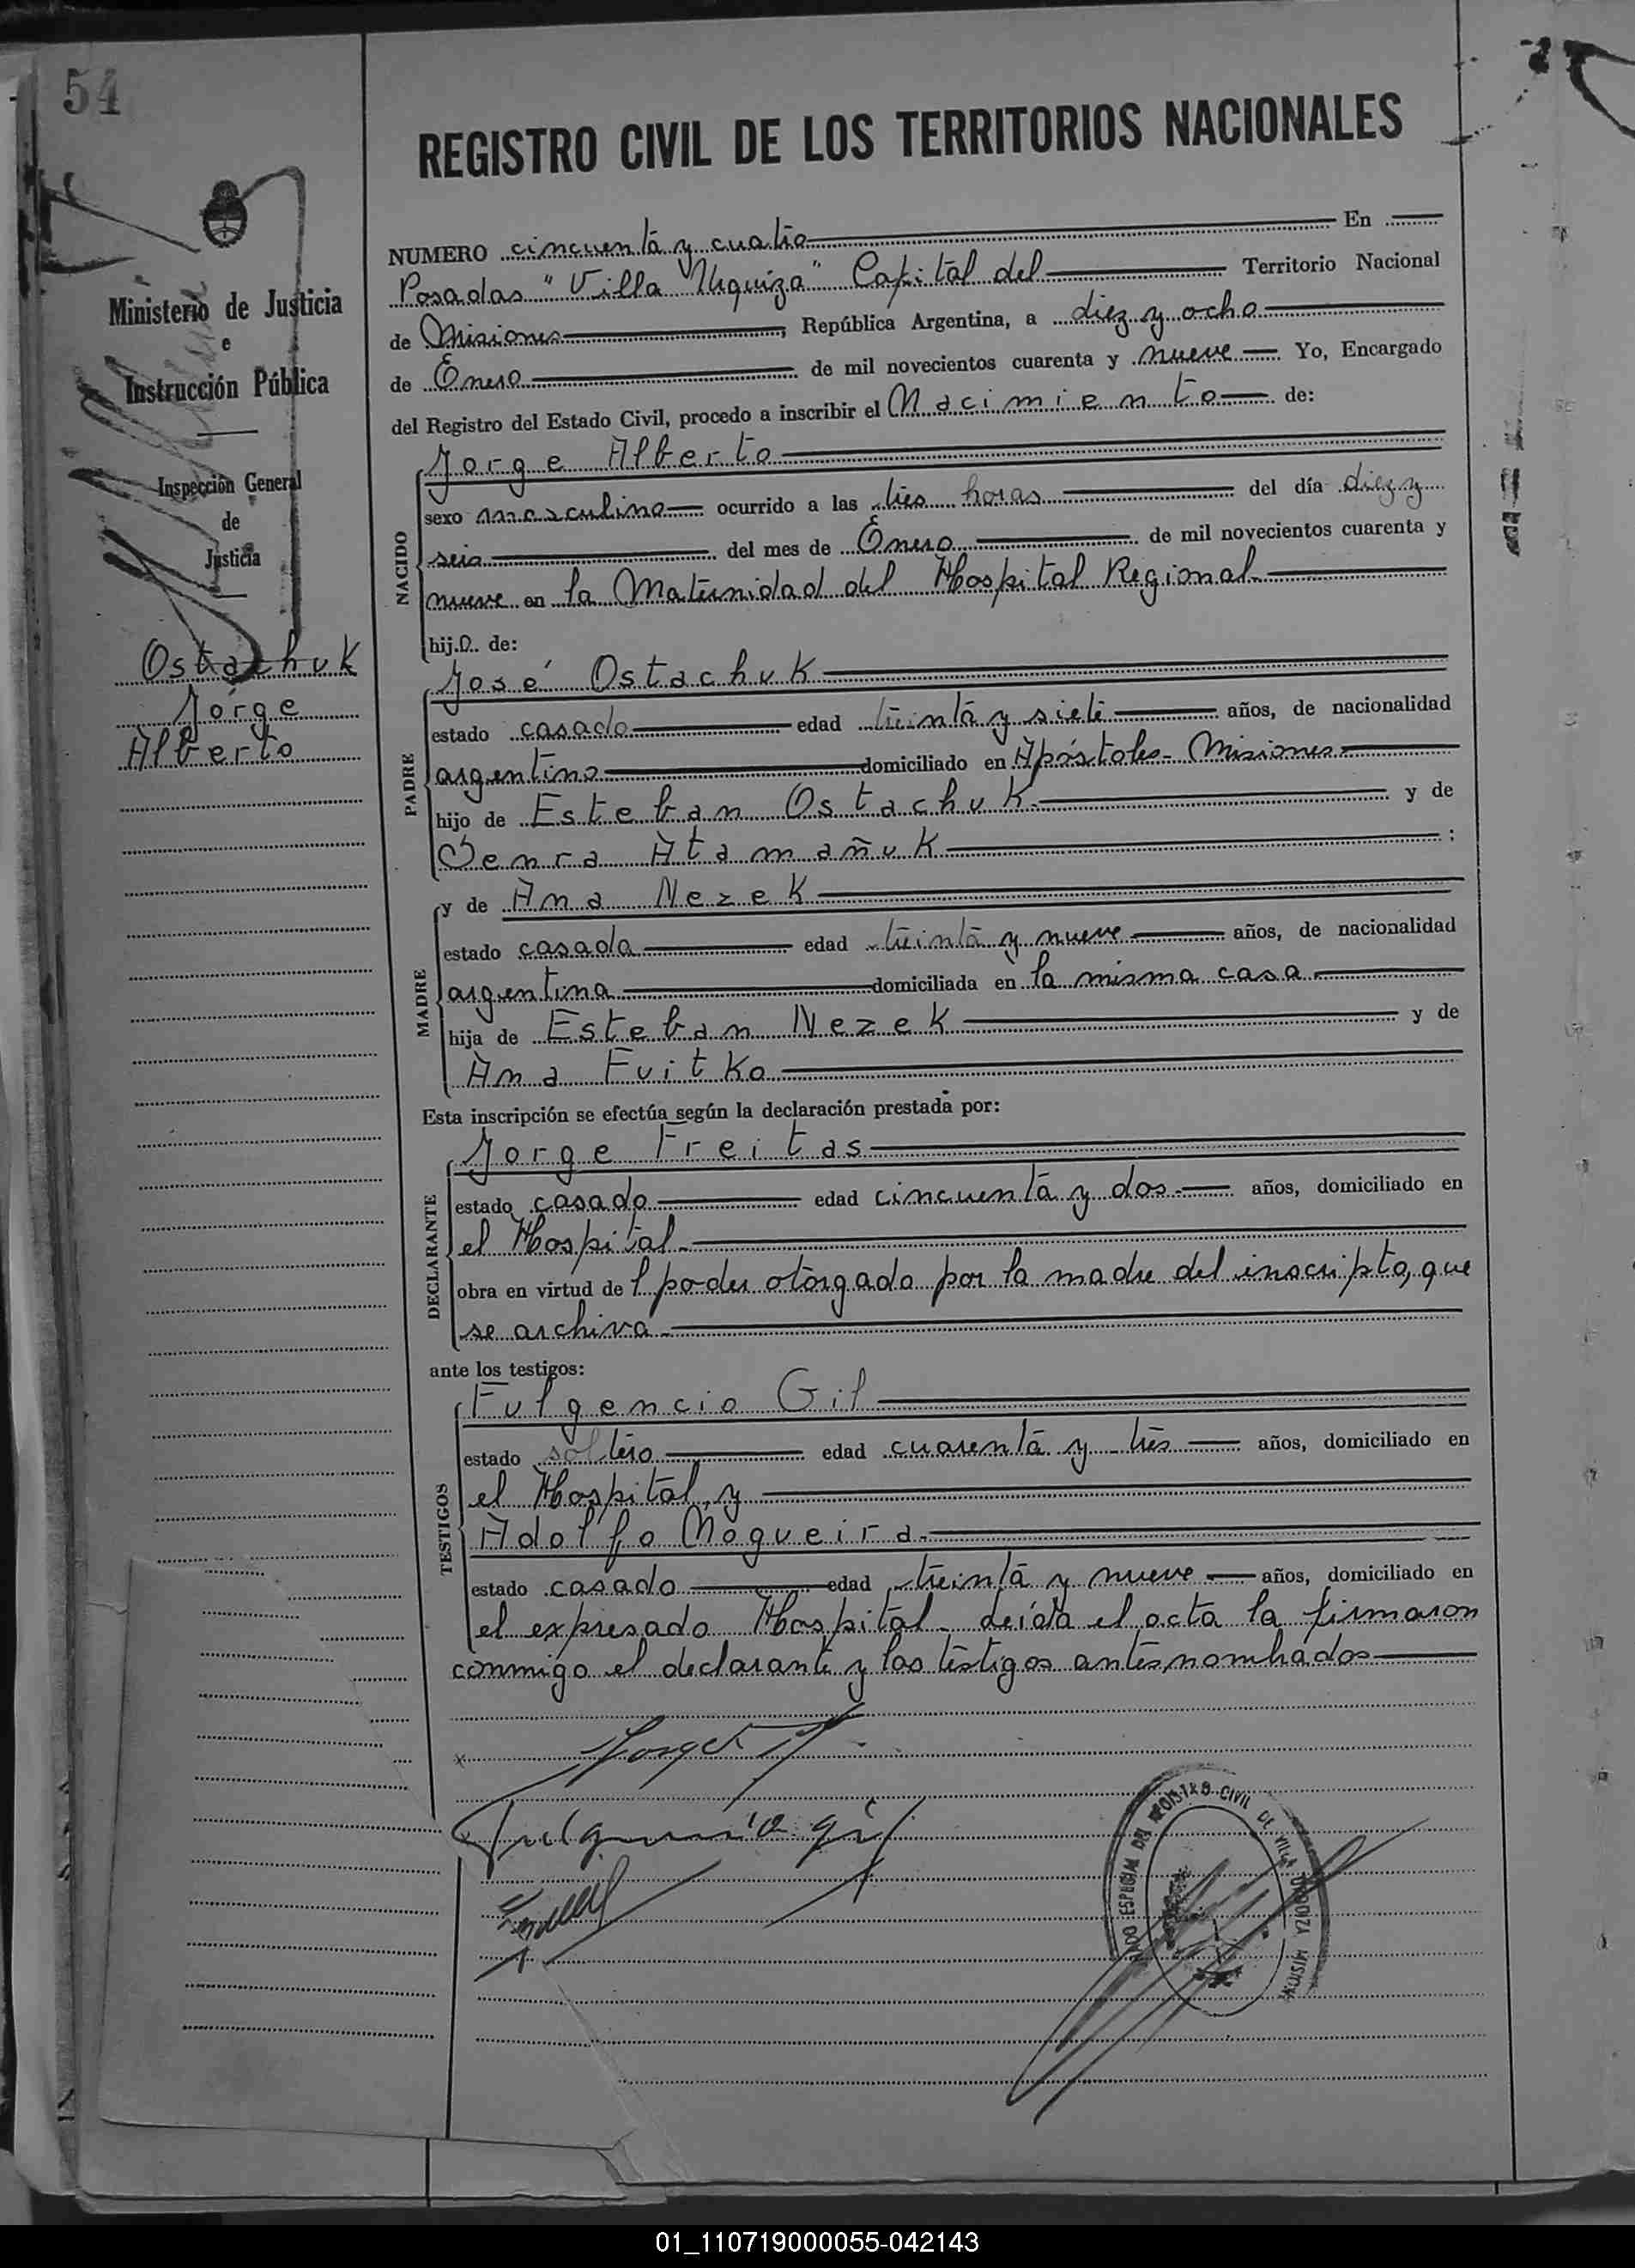 54
REGISTRO CIVIL DE LOS TERRITORIOS NACIONALES
Ministerio de Justicia
e
Instrucción Pública
Inspección General
de
Justicia
Ostachuk
Jorge
Alberto
NUMERO cincuenta y cuatro En
Posadas "Villa Urquiza" Capital del Territorio Nacional
de Misiones, República Argentina, a diez y ocho
de Enero de mil novecientos cuarenta y nueve Yo, Encargado
del Registro del Estado Civil, procedo a inscribir el Nacimiento de:
NACIDO
Jorge Alberto
sexo masculino ocurrido a las tres horas del día diez y
seis del mes de Enero de mil novecientos cuarenta y
nueve en la Maternidad del Hospital Regional
hijo de:
PADRE
José Ostachuk
estado casado edad treinta y siete años, de nacionalidad
argentino domiciliado en Apóstoles - Misiones
hijo de Esteban Ostachuk y de
Atamañuk ;
MADRE
y de Ana Nezek
estado casada edad treinta y nueve años, de nacionalidad
argentina domiciliada en la misma casa
hija de Esteban Nezek y de
Ana Fuitko
Esta inscripción se efectúa según la declaración prestada por:
DECLARANTE
Jorge Freitas
estado casado edad cincuenta y dos años, domiciliado en
el Hospital
obra en virtud del poder otorgado por la madre del inscripto, que
se archiva
ante los testigos:
TESTIGOS
Fulgencio Gil
estado soltero edad cuarenta y tres años, domiciliado en
el Hospital, y
Adolfo Nogueira
estado casado edad treinta y nueve años, domiciliado en
el expresado Hospital. Leída el acta la firmaron
conmigo el declarante y los testigos antes nombrados
Jorge
Fulgencio Gil
REGISTRO CIVIL DE VILLA URQUIZA MISIONES
01_110719000055-042143